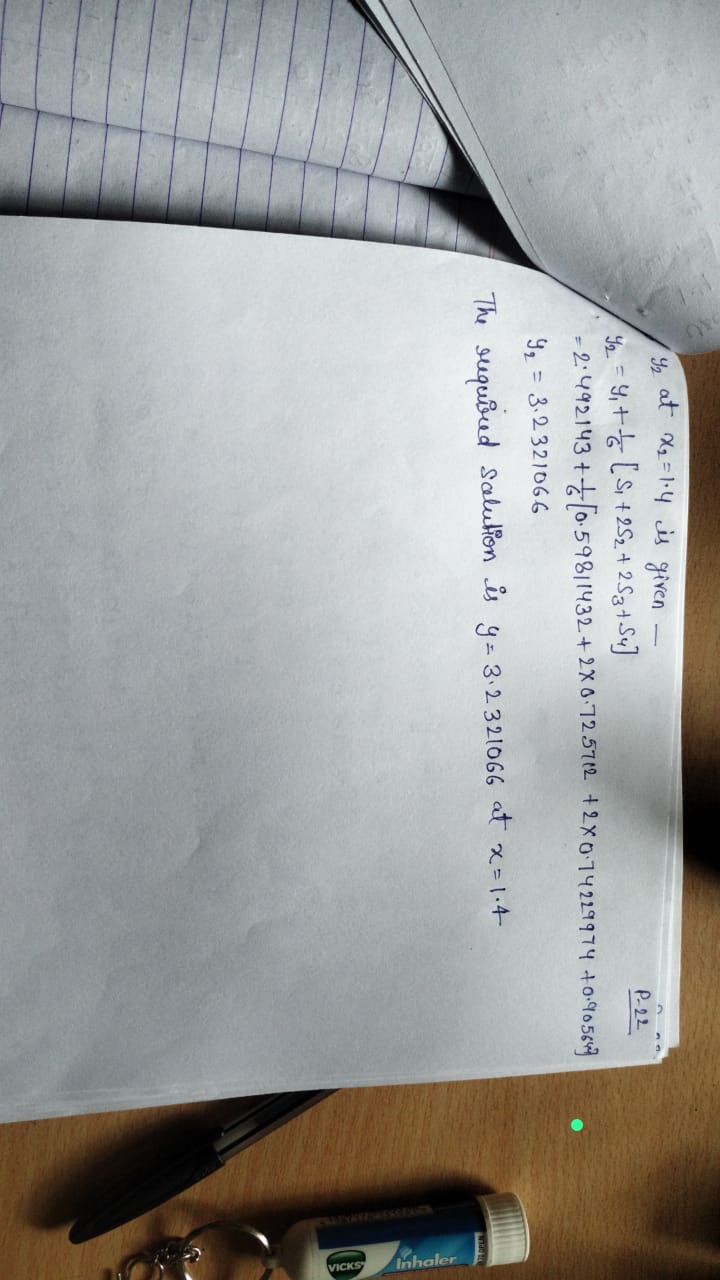 P-22
y₂ at x₂ = 1.4 is given —
y₂ = y₁ + 1/6 [S₁ + 2S₂ + 2S₃ + S₄]
= 2.492143 + 1/6 [0.59811432 + 2×0.725712 + 2×0.74229974 + 0.90564]
y₂ = 3.2321066
The required solution is y = 3.2321066 at x = 1.4
VICKS
Inhaler